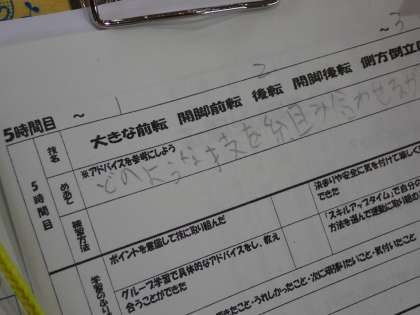 5時間目 ~
1 2 ~3
大きな前転 開脚前転 後転 開脚後転 側方倒立
技名
※アドバイスを参考にしよう
5時間目
めあて
どのような技を組み合わせるか
練習方法
ポイントを意識して技に取り組んだ
決まりや安全に気を付けて楽しく
できた
グループ学習で具体的なアドバイスをし、教え
合うことができた
「スキルアップタイム」で自分の
方法を選んで運動に取り組め
学習のふり
できたこと・うれしかったこと・次に頑張りたいこと・気付いたこと